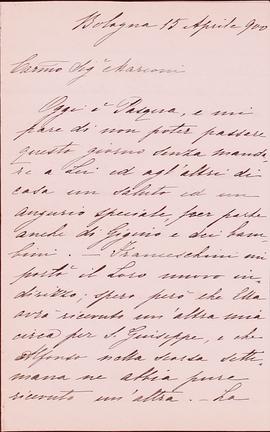 Bologna 15 Aprile 900
Carmo Sigr Marconi
Oggi è Pasqua, e mi
pare di non poter passare
questo giorno senza manda-
re a Lei ed agl'altri di
casa un saluto ed un
augurio speciale, per parte
anche di Gigino e dei bam-
bini. — Franceschini mi
portò il loro nuovo in-
dirizzo; spero però che Ella
avrà ricevuto un'altra mia
circa per S. Giuseppe, e che
Alfonso nella scorsa sette-
mana ne abbia pure
ricevuto un'altra. — La